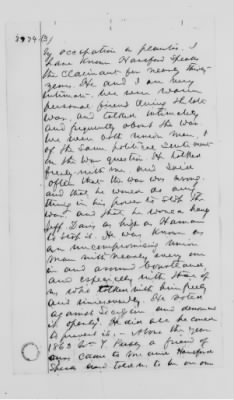 My occupation a planter. I
have known Hansford
the claimant for nearly thirty
years. He and I are very
intimate. We were warm
personal friends during the late
war, and talked intimately
and frequently about the war
We were both Union men &
of the same political sentiments
on the war question. He talked
freely with me and said
often that the war was wrong
and that he would do any
thing in his power to stop the
war and that he would hang
Jeff. Davis as high as Haman
to stop it. He was known as
an uncompromising Union
man with nearly every one
in and around
and especially with those of
us who talked with him freely
and unreservedly. He voted
against Secession and denounced
it openly. He did all he could
to prevent it. About the year
1863 Wm. T. a friend of
came to me and Hansford
and told us to be on our